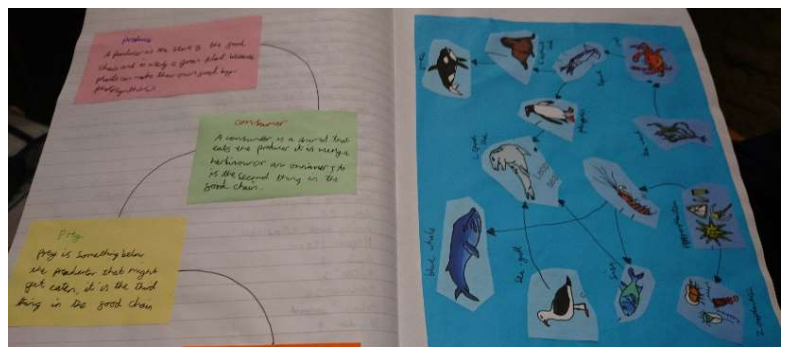 producer
A producer is the start of the food
chain and is usally a green plant because
plants can make their own food by
photosynthisis
consumer
A consumer is a animal that
eats the producer it is usally a
herbivour or an omnivour
is the second thing in the
food chain.
Prey
Prey is something below
the predator that might
get eaten, it is the third
thing in the food chain
crab
squid
penguin
leopard seal
blue whale
sea-gull
fish
phytoplankton
zooplankton